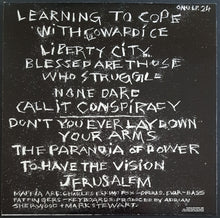 LEARNING TO COPE
ONU LP 24
WITH COWARDICE
LIBERTY CITY
BLESSED ARE THOSE
WHO STRUGGLE
NONE DARE
CALL IT CONSPIRACY
DON'T YOU EVER LAY DOWN
YOUR ARMS
THE PARANOIA OF POWER
TO HAVE THE VISION
JERUSALEM
MAFFIA ARE CHARLES ESKIMO FOX - DRUMS. EVAR - BASS
FATFINGERS - KEYBOARDS. PRODUCED BY ADRIAN
SHERWOOD + MARK STEWART.